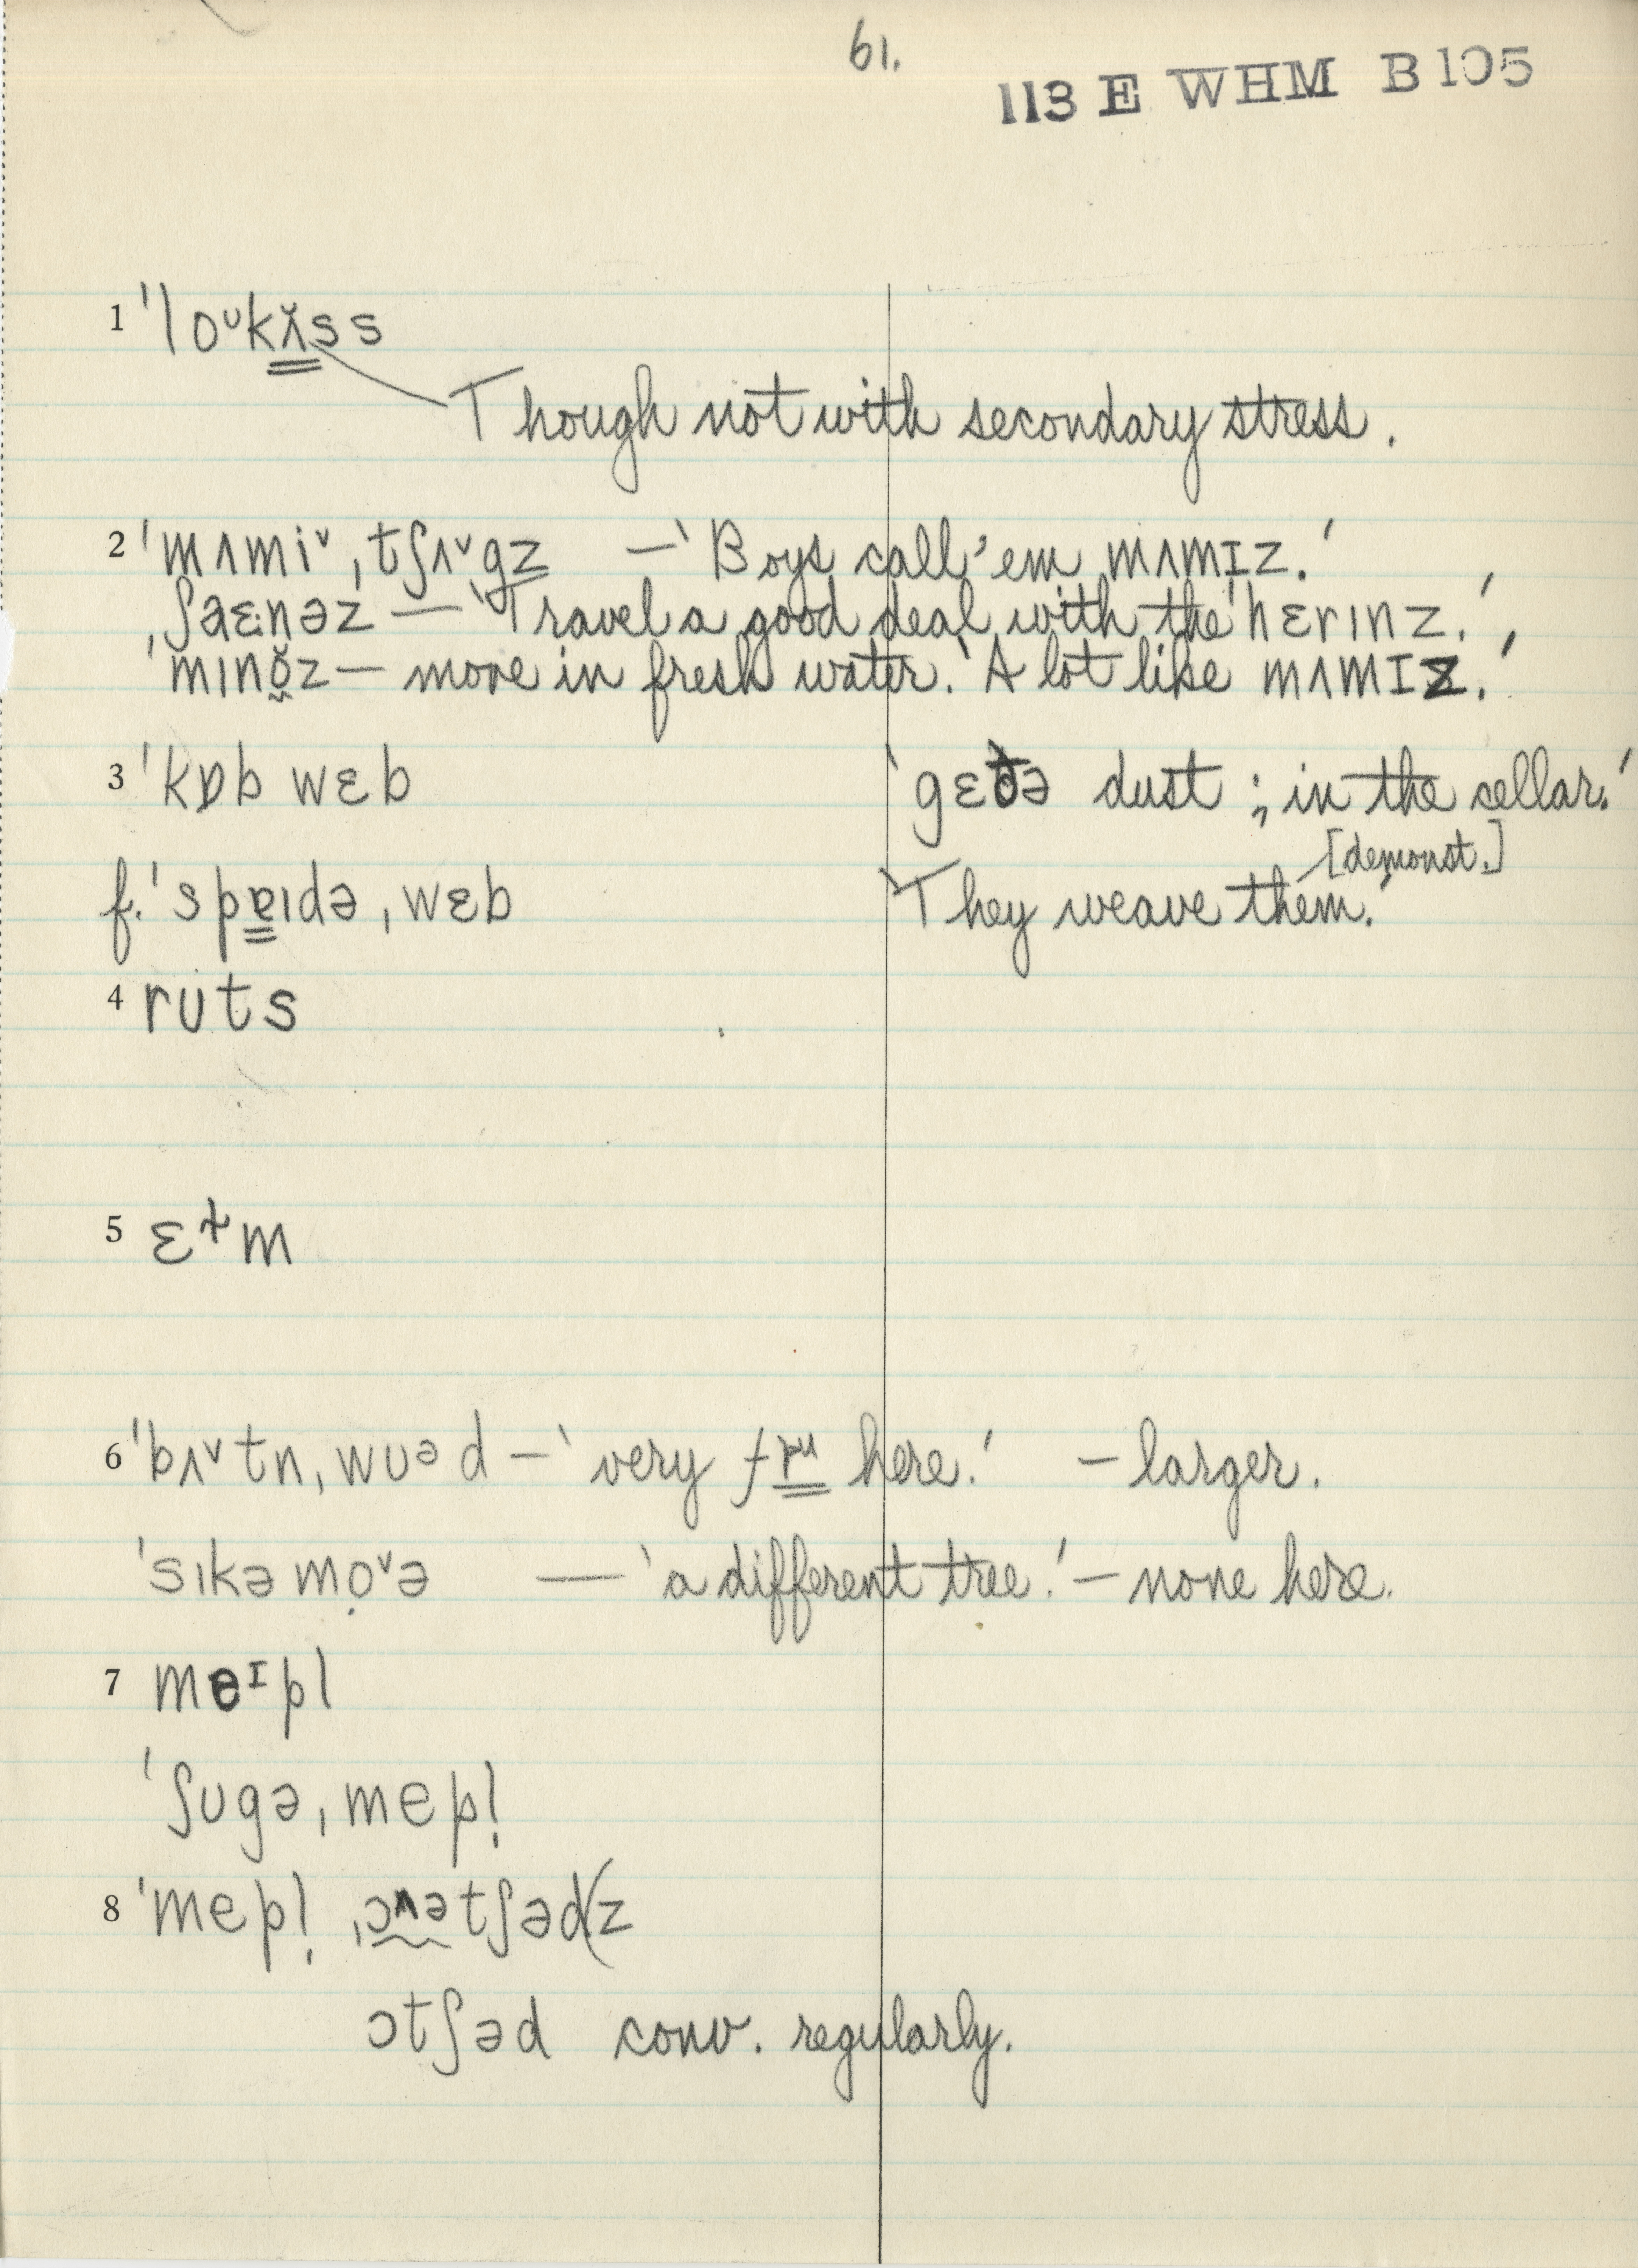 61.
113 E WHM B105
1 ˈloᵁkʌ̌ss
Though not with secondary stress.
2 ˈmʌmiˇˌtʃʌˇgz — 'Boys call 'em mʌmɪz.'
ˌʃaɛnəz — 'Travel a good deal with the ˈhɛrɪnz.',
ˈmɪnŏ̬z — more in fresh water. 'A lot like mʌmɪz.'
3 ˈkɒb wɛb 'gɛðə dust; in the cellar.'
[demonst.]
f. ˈspɐɪdəˌwɛb 'They weave them.'
4 rᴜts
5 ɛɫm
6 ˈbʌˇtnˌwᴜᵊd — 'very fru here.' — larger.
ˈsɪkəmọˇə — 'a different tree.' — none here.
7 meᶦpl
ˈʃᴜgəˌmepl̩
8 ˈmepl̩ ˌɔʌətʃəd(z
ɔtʃəd conv. regularly.